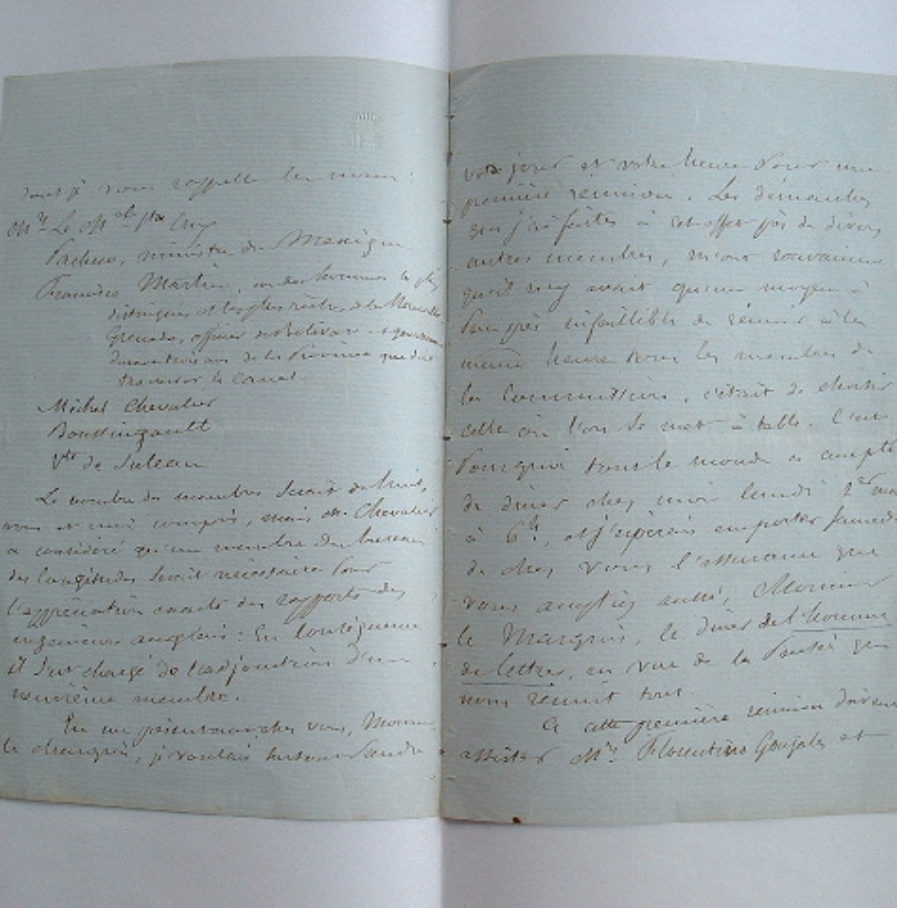 dont je vous rappelle les noms :
Mrs Le
Pacheco, ministre du Mexique
Francisco Martin, un des hommes les plus
distingués et les plus riches de la Nouvelle
Grenade, officier de Bolivar et gouverneur
de la Province que doit
traverser le Canal
Michel Chevalier
Boussingault
Vte de Suleau
Le nombre des membres serait de huit,
vous et moi compris, mais M. Chevalier
a considéré qu'un membre du bureau
des longitudes serait nécessaire pour
l'appréciation exacte des rapports des
ingénieurs anglais : En conséquence
il s'est chargé de l'adjonction d'un
neuvième membre.
En me présentant chez vous, Monsieur
le Marquis, je voulais prendre
votre jour et votre heure pour une
première réunion. Les démarches
que j'ai faites à cet effet près de divers
autres membres, m'ont convaincu
qu'il n'y avait qu'un moyen à
peu près infaillible de réunir à la
même heure tous les membres de
la Commission, c'était de choisir
celle où l'on se met à table. C'est
pourquoi tout le monde a accepté
de dîner chez moi lundi 2
à 6h, et j'espérais emporter
de chez vous l'assurance que
vous acceptiez aussi, Monsieur
le Marquis, le dîner de l'homme
de lettres, en vue de la pensée qui
nous réunit tous.
A cette première réunion doivent
assister Mrs Florentino Gonzales et